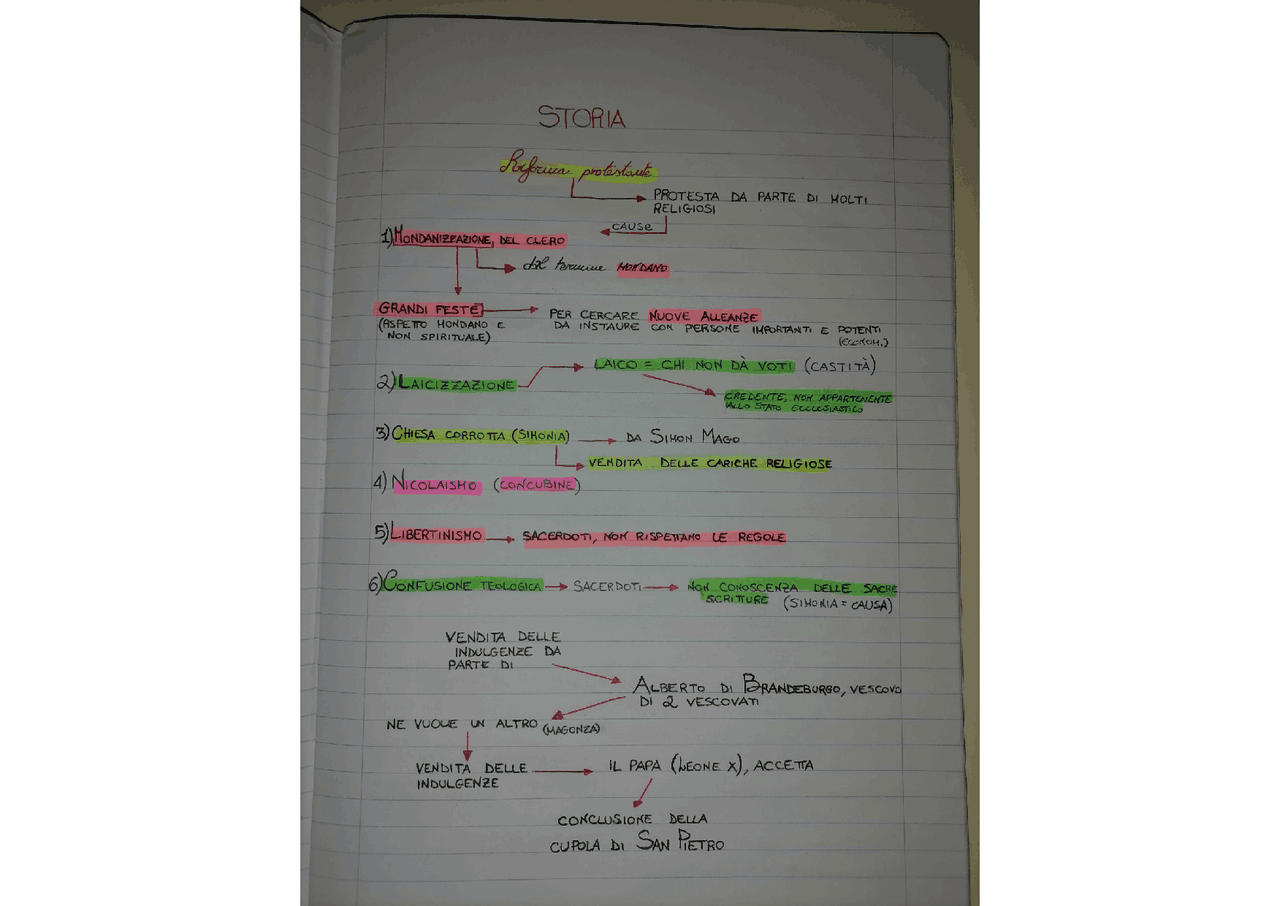 STORIA
Riforma protestante
PROTESTA DA PARTE DI MOLTI
RELIGIOSI
CAUSE
1) MONDANIZZAZIONE, DEL CLERO
dal termine MONDANO
GRANDI FESTE
(ASPETTO MONDANO E
NON SPIRITUALE)
PER CERCARE NUOVE ALLEANZE
DA INSTAURE CON PERSONE IMPORTANTI E POTENTI
(ECONOM.)
2) LAICIZZAZIONE
LAICO = CHI NON DÀ VOTI (CASTITÀ)
CREDENTE, NON APPARTENENTE
ALLO STATO ECCLESIASTICO
3) CHIESA CORROTTA (SIMONIA)
DA SIMON MAGO
VENDITA DELLE CARICHE RELIGIOSE
4) NICOLAISMO (CONCUBINE)
5) LIBERTINISMO
SACERDOTI, NON RISPETTANO LE REGOLE
6) CONFUSIONE TEOLOGICA
SACERDOTI
NON CONOSCENZA DELLE SACRE
SCRITTURE (SIMONIA = CAUSA)
VENDITA DELLE
INDULGENZE DA
PARTE DI
ALBERTO DI BRANDEBURGO, VESCOVO
DI 2 VESCOVATI
NE VUOLE UN ALTRO (MAGONZA)
VENDITA DELLE
INDULGENZE
IL PAPA (LEONE X), ACCETTA
CONCLUSIONE DELLA
CUPOLA DI SAN PIETRO